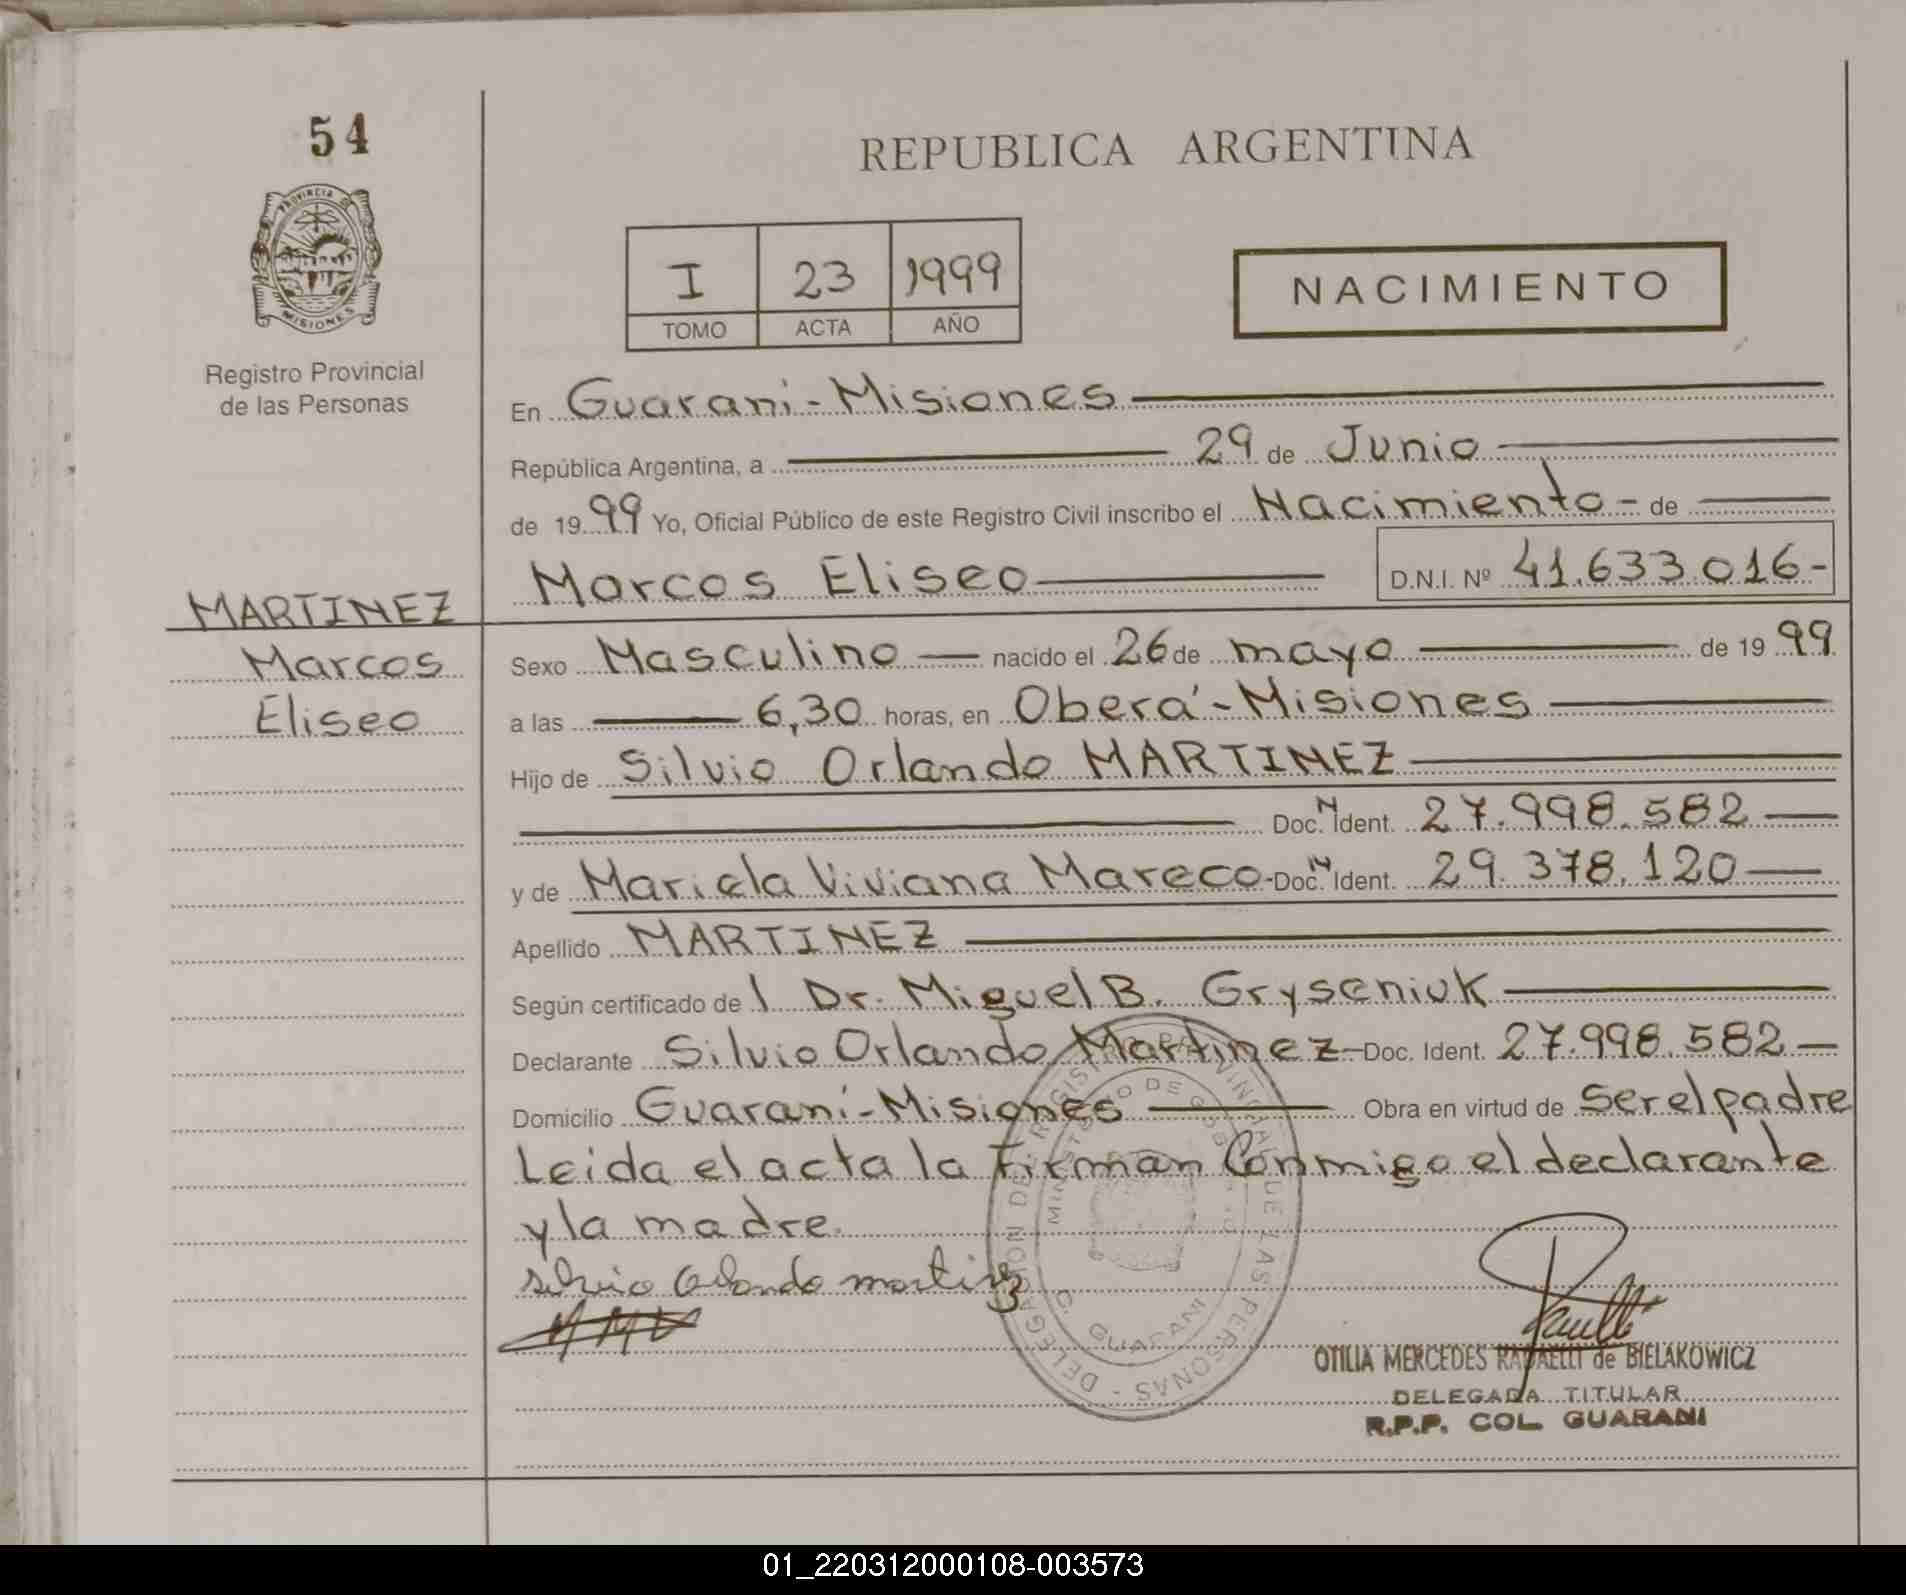 54
PROVINCIA DE
MISIONES
Registro Provincial
de las Personas
MARTINEZ
Marcos
Eliseo
REPUBLICA ARGENTINA
I 23 1999
TOMO ACTA AÑO
NACIMIENTO
En Guaraní - Misiones
República Argentina, a 29 de Junio
de 19 99 Yo, Oficial Público de este Registro Civil inscribo el Nacimiento - de
Marcos Eliseo D.N.I. Nº 41.633.016-
Sexo Masculino nacido el 26 de mayo de 19 99
a las 6,30 horas, en Oberá - Misiones
Hijo de Silvio Orlando MARTINEZ
Doc. N Ident. 27.998.582
y de Mariela Viviana Mareco - Doc. N Ident. 29.378.120
Apellido MARTINEZ
Según certificado de l Dr. Miguel B. Gryseniuk
Declarante Silvio Orlando Martinez Doc. Ident. 27.998.582
Domicilio Guaraní - Misiones Obra en virtud de ser el padre
Leida el acta la Firman Conmigo el declarante
y la madre.
silvio Orlando martinez
OTILIA MERCEDES RAFAELLI de BIELAKOWICZ
DELEGADA TITULAR
R.P.P. COL. GUARANI
DELEGACION DEL REGISTRO PROVINCIAL DE LAS PERSONAS
MINISTERIO DE GOBIERNO
C. GUARANI
01_220312000108-003573